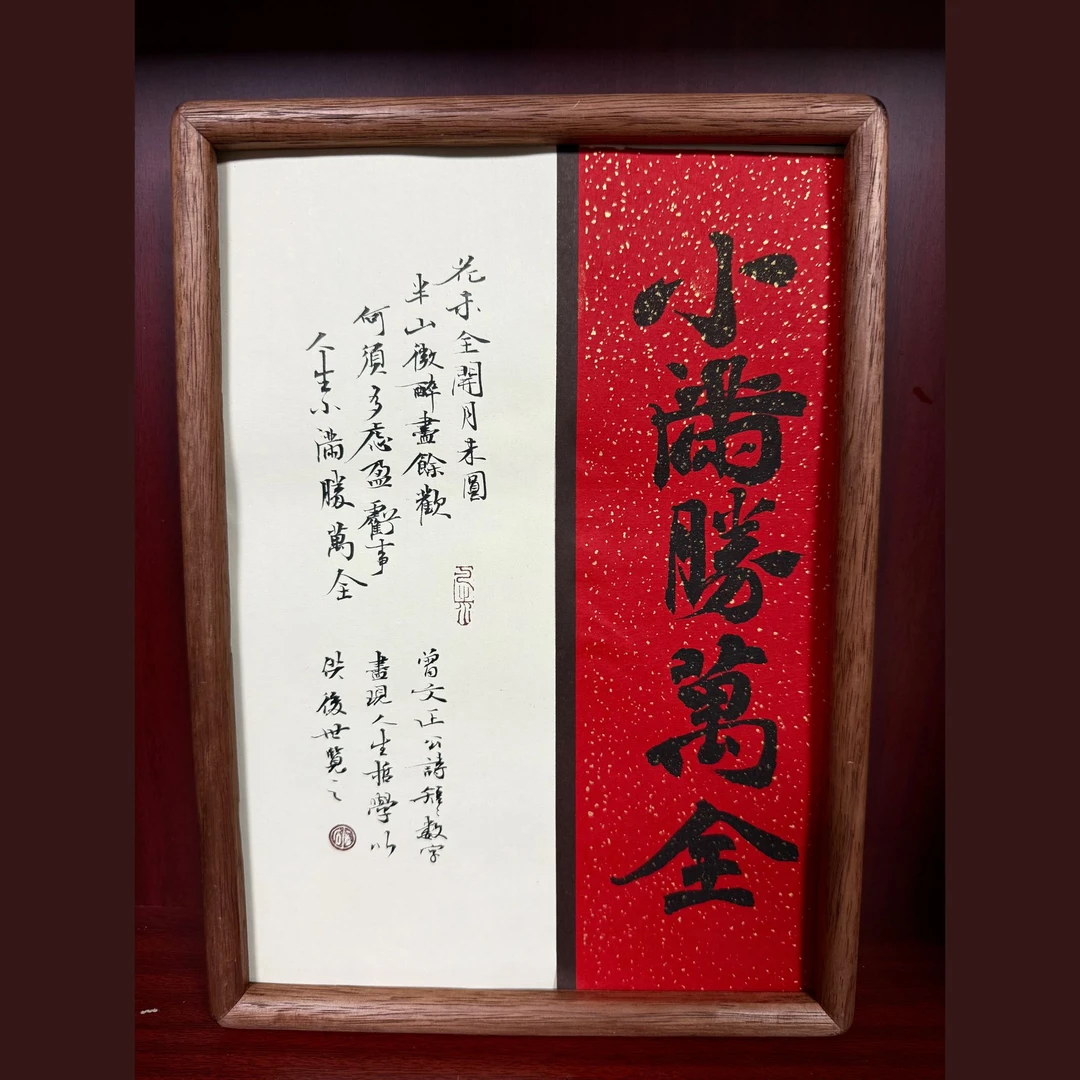 小滿勝萬全
花未全開月未圓
半山微醉盡餘歡
何須多慮盈虧事
人生小滿勝萬全
曾文正公詩短短數字
盡現人生哲學以
供後世覽之